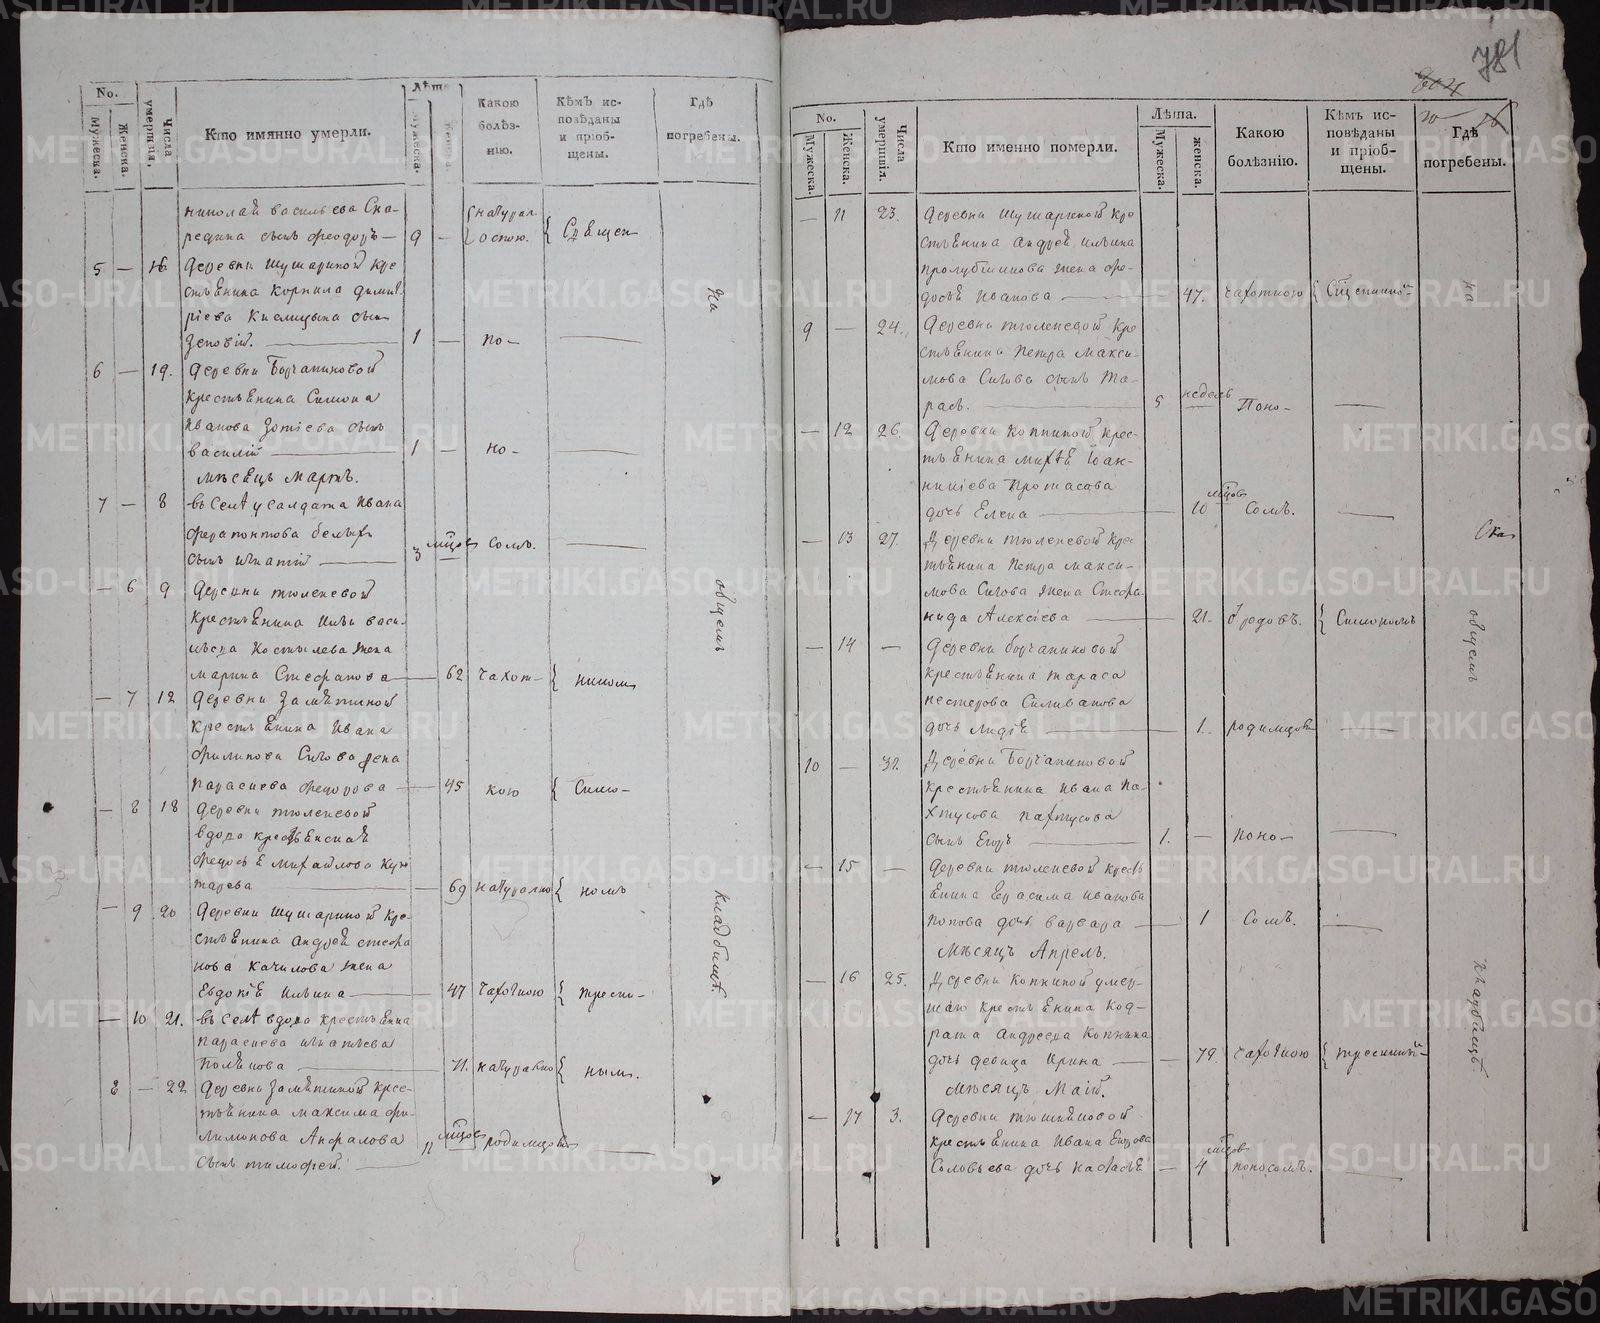 No.
Мужеска.
Женска.
Числа умершiя.
Кто имянно умерли.
Лѣта
Мужеска.
Какою болѣз-нiю.
Кѣмъ ис-повѣданы и прiоб-щены.
Гдѣ погребены.
николай васильева Ска-
редина сынъ Ѳеодоръ — 9 — натурал оспою. Сдѣщен
5 — 16 Деревни Шушариной кре
стьѣнина Корнила Димит
рiева Кислицына сын
Зеновiй. 1 — по-
6 — 19. Деревни Борчаниновой
крестьѣнина Симона
Иванова Зотiева сынъ
василiй 1 — но-
мѣсецъ Мартъ.
7 — 8 въ селѣ у салдата Ивана
Ферапонтова белых
сынъ игнатiй 3 мѣцов сомъ.
— 6 9 Деревни тюленевой
крестьѣнина Ильи васи-
льева Костылева жена
марина Стефанова — 62 чахот- ником
— 7 12 Деревни Замѣтиной
крестьѣнина Ивана
филипова Сигова жена
парасиева Федорова — 45 кою Симо-
— 8 18 Деревни тюленевой
вдова крестьѣнскаѣ
Федосьѣ михайлова Кун
тарева — 69 натурално номъ
— 9 20 Деревни Шушариной кре-
стьѣнина Андрей стефа
нова Качилова жена
Евдокiѣ Ильина 47 чахочною
— 10 21. въ селѣ вдова крестьѣнка
парасиева игнатьева
71. натурално ным.
8 — 22 Деревни Замѣтиной крес-
тьѣнина максима фи-
лимонова Анфалова
сынъ тимофей. 11 мѣцов родимцов
на
общемъ
кладбищѣ
781
804
No.
Мужеска.
Женска.
Числа умершiя.
Кто именно померли.
Лѣта.
Мужеска.
женска.
Какою болѣзнiю.
Кѣмъ ис-повѣданы и прiоб-щены.
Гдѣ погребены.
— 11 23. Деревни Шушариной кре
стьѣнина Андрей ильина
пролубшикова жена Фе-
досьѣ Иванова 47. чахотною Сщенникой
9 — 24. Деревни тюленевой кре
стьѣнина Петра Макси-
мова Сигова сынъ Та-
расъ. 5 недель Поно-
— 12 26. Деревни Копниной крес-
тьѣнина Михѣѣ Iоан-
никiева Протасова
дочь Елена 10 мѣцов Сомъ.
— 13 27. Деревни тюленевой крес
тьѣнина Петра макси-
мова Сигова жена Стефа-
нида Алексiева 21. Симономъ
— 14 — Деревни борчаниновой
крестьѣнина тараса
нестерова Силиванова
дочь лидiѣ 1. родимцов
10 — 31. Деревни Борчаниновой
крестьѣнина Ивана Па-
хтусова пахтусова
сынъ Егоръ 1. — поно-
— 15 — Деревни тюленевой кресть
ѣнина Герасима иванова
попова дочь варвара 1 Сомъ.
Мѣсяцъ Апрель.
— 16 25. Деревни копниной умер-
шаго крестьѣнина Код-
рата Андреева Копнина
дочь девица Ирина 79 чахочною
Мѣсяцъ Маiй.
— 17 3. Деревни
крестьѣнина Ивана Егорова
Соловьева дочь настасьѣ 4 мѣцов поносомъ.
на
общемъ
кладбищѣ.